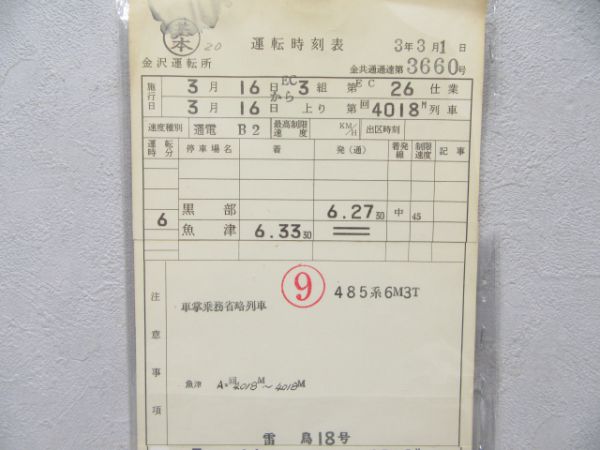 本 20
運転時刻表
3年3月1日
金沢運転所
金共通通達第3660号
施行日 3月16日から EC3組 第EC26仕業
3月16日 上り 第回4018M列車
速度種別 通電 B2 最高制限速度 KM/H 出区時刻
運転時分 停車場名 着 発(通) 着発線 制限速度 記事
黒部 6.27 30 中 45
6 魚津 6.33 30
注意事項
⑨ 485系6M3T
車掌乗務省略列車
魚津 A=回4018M~4018M
雷鳥18号